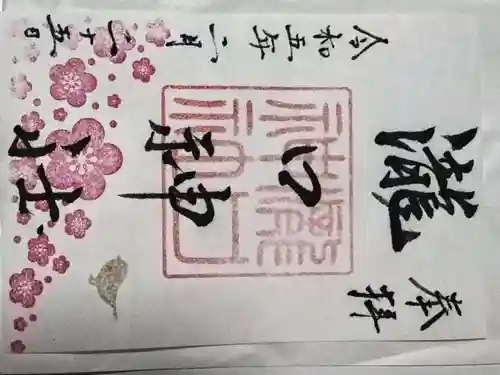 奉拝
瀧口神社
令和五年二月二十五日